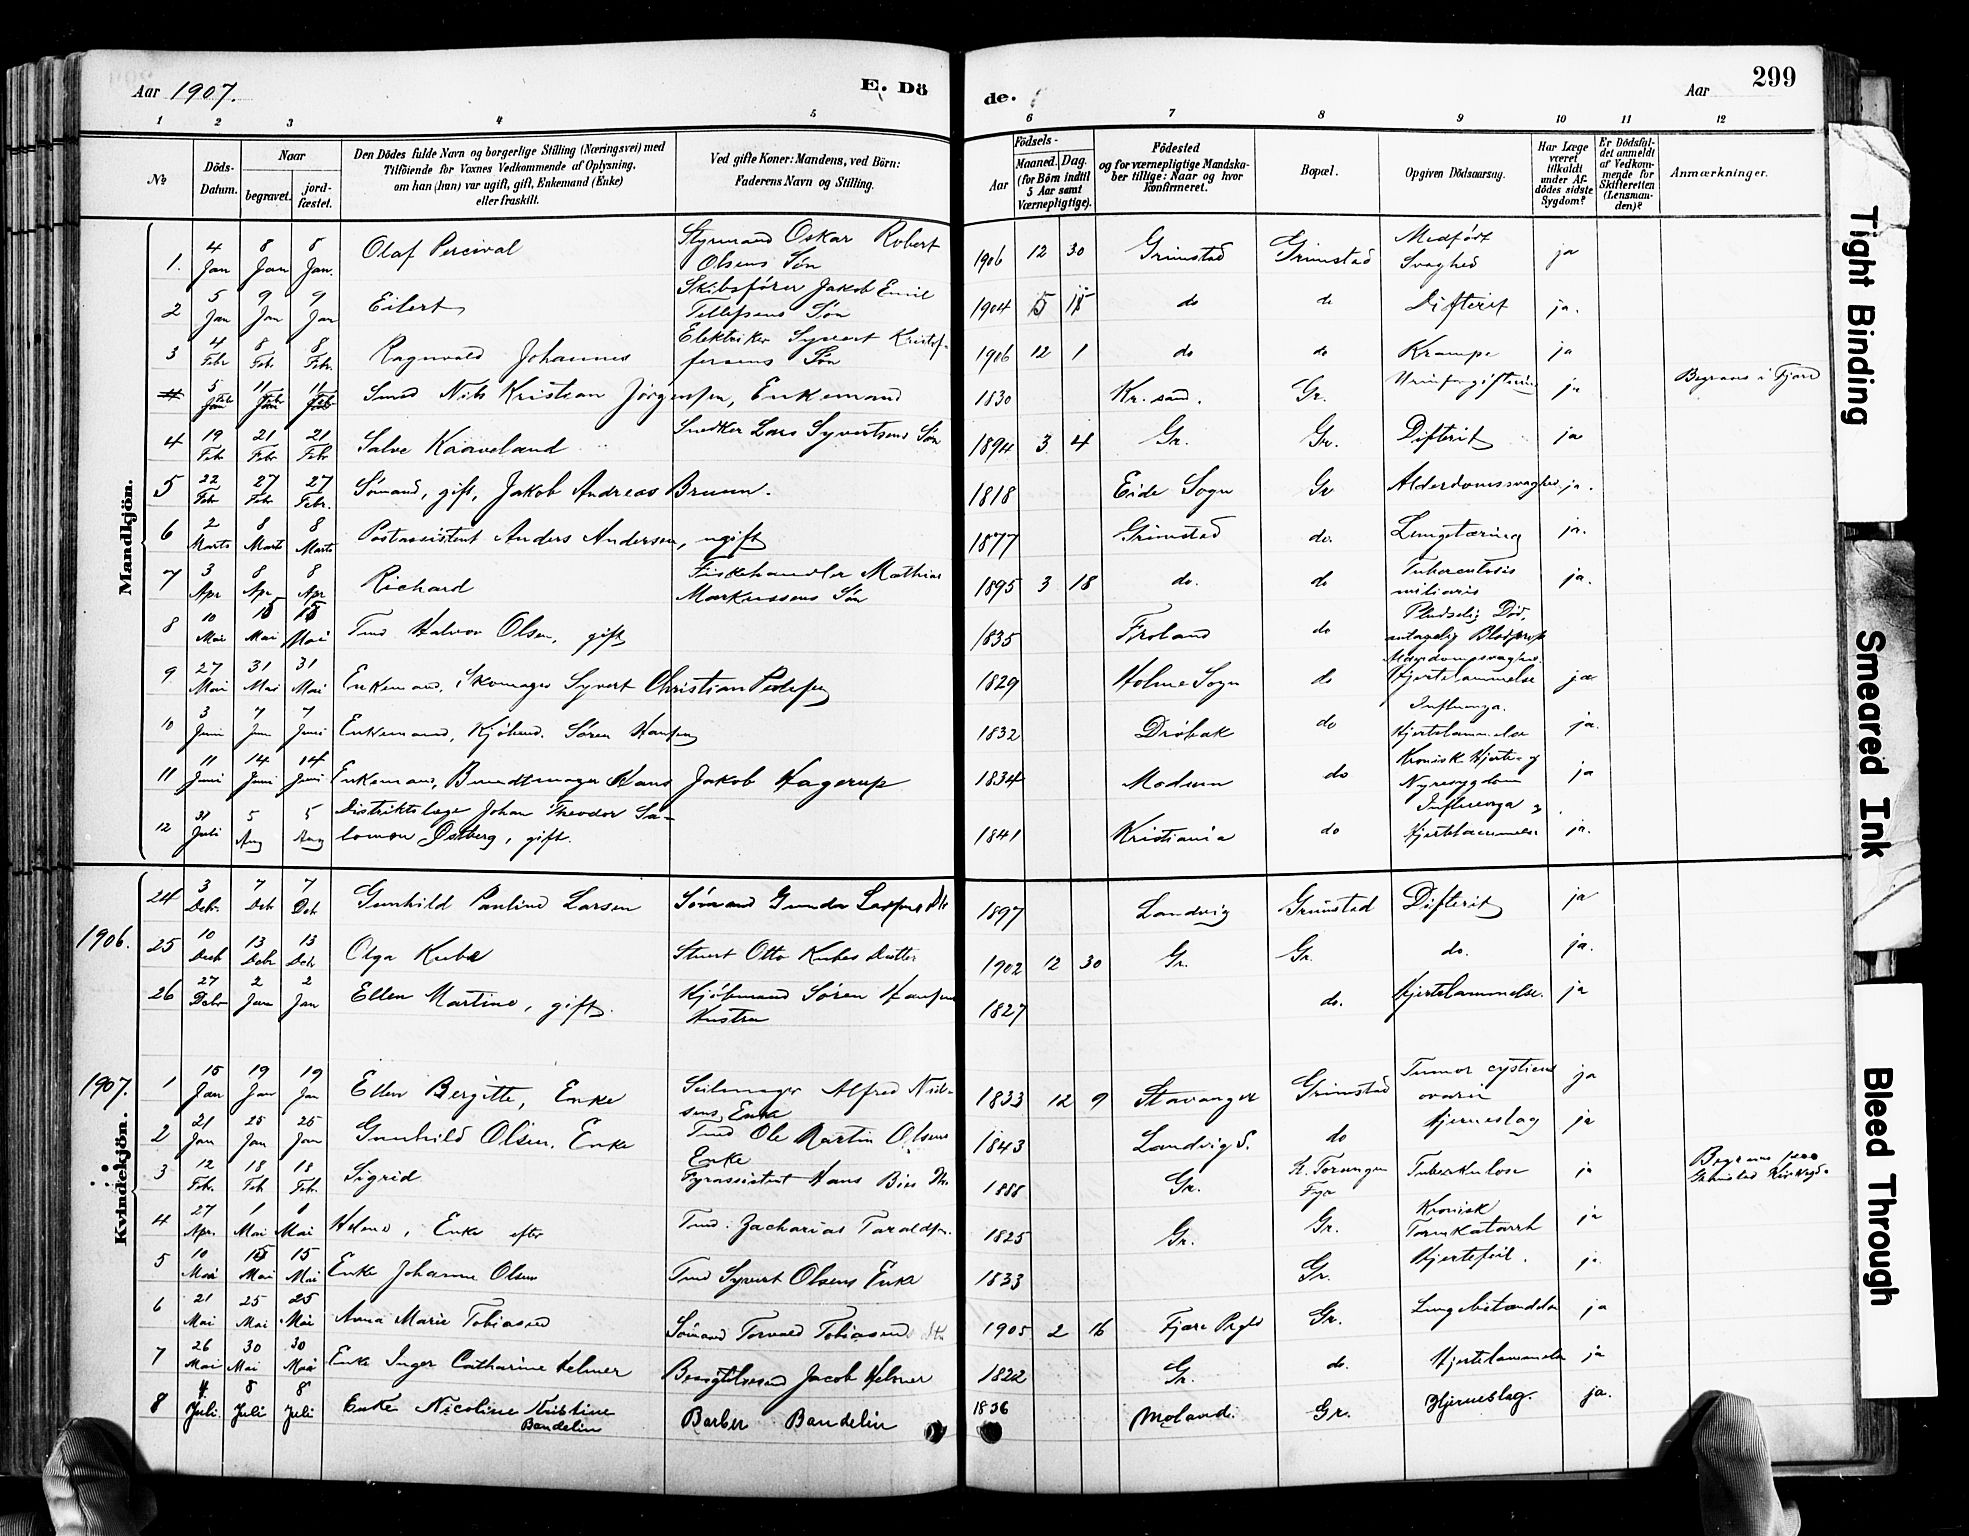 Aar 1907.
E. Dö
de.
Aar
299
1 2 3 4 5 6 7 8 9 10 11 12
No
Döds-Datum.
Naar
begravet.
jord-fæstet.
Den Dödes fulde Navn og borgerlige Stilling (Næringsvei) med
Tilföiende for Voxnes Vedkommende af Oplysning,
om han (hun) var ugift, gift, Enkemand (Enke)
eller fraskilt.
Ved gifte Koner: Mandens, ved Börn:
Faderens Navn og Stilling.
Födsels-
Aar
Maaned. Dag.
(for Börn indtil
5 Aar samt
Værnepligtige).
Födested
og for værnepligtige Mandska-
ber tillige: Naar og hvor
Konfirmeret.
Bopæl.
Opgiven Dödsaarsag.
Har Læge
været
tilkaldt
under Af-
dödes sidste
Sygdom?
Er Dödsfal-
det anmeldt
af Vedkom-
mende for
Skifteretten
(Lensman-
den)?
Anmærkninger.
Mandkjön.
1. 4 Jan 8 Jan 8 Jan. Olaf Percival Styrmand Oskar Robert Olsens Søn 1906 12 30 Grimstad Grimstad Medfødt Svaghed ja
2 5 Jan 9 Jan 9 Jan Eilert Skibsfører Jakob Emil Tellefsens Søn 1904 do do Difterit ja.
3 4 Febr 8 Febr 8 Febr. Ragnvald Johannes Elektriker Syvert Kristoffersens Søn 1906 12 1 do do Krampe ja
5 Febr 11 Febr 11 Febr Smed Nils Kristian Jørgensen, Enkemand 1830 Kr.sand. Gr. ja Begraves i Fjære
4 19 Febr 21 Febr 21 Febr Salve Kaaveland Snedker Lars Syvertsens Søn 1894 3 4 Gr. Gr. Difterit ja
5 22 Febr 27 Febr 27 Febr. Sømand, gift, Jakob Andreas Bruun. 1818 Eide Sogn Gr Alderdomssvaghed ja.
6 2 Marts 8 Marts 8 Marts Postassistent Anders Andersen, ugift 1877 Grimstad do. Lungetæring ja.
7 3 Apr 8 Apr 8 Apr Richard Fiskehandler Mathias Markussens Søn 1895 3 18 do. do Tuberculosis miliaris ja.
8 10 Mai 15 Mai 15 Mai Tmd Halvor Olsen, gift 1835 Froland do Pludselig Død, antagelig Blodprop
9 27 Mai 31 Mai 31 Mai Enkemand, Skomager Syvert Christian Pedersen 1829 Holme Sogn do Alderdomssvaghed. Hjertelammelse ja
10 3 Juni 7 Juni 7 Juni Enkemand, Kjøbmd. Søren Hansen 1832 Drøbak do Influenza. Hjertelammelse ja.
11 11 Juni 14 Juni 14 Juni Enkemand, Bundtmager Hans Jakob Hagerup 1834 Modum do Kronisk Hjerte- og Nyresygdom ja
12 31 Juli 5 Aug 5 Aug Distriktslæge Johan Theodor Salomon Østberg, gift. 1841 Kristiania do Influenza og Hjertelammelse ja.
1906.
24 3 Debr. 7 Deb 7 Deb Gunhild Pauline Larsen Sømand Gunder Larsens Dtr 1897 Landvig Grimstad Difterit ja
25 10 Decb 13 Debr 13 Debr Olga Kube Stuert Otto Kubes Datter 1902 12 30 Gr. Gr. do. ja.
26 27 Debr 2 Jan 2 Jan Ellen Martine, gift. Kjøbmand Søren Hansens Hustru 1827 do. Hjertelammelse. ja
1907.
Kvindekjön.
1 15 Jan 19 Jan 19 Jan Ellen Bergitte, Enke Seilmager Alfred Nielsens Enke 1833 12 9 Stavanger Grimstad Tumor cysticus ovarii ja
2 21 Jan 25 Jan 25 Jan Gunhild Olsen, Enke Tmd Ole Martin Olsens Enke 1843 Landvig S. do Hjerneslag ja
3 12 Febr. 18 Feb 18 Feb. Sigrid Fyrassistent Hans 1888 Gr. Torungen Fyr Tuberkulose ja Begraves paa Grimstad Kirkegd.
4 27 Apr. 1 Mai 1 Mai Helene, Enke efter Tmd. Zacharias Taraldsen. 1825 Gr. Gr. Kronisk Tarmkatarrh ja
5 10 Mai 15 Mai 15 Mai Enke Johanne Olsen Tmd Syvert Olsens Enke 1833 Gr. Hjertefeil. ja.
6 21 Mai 25 Mai 25 Mai Anna Marie Tobiassen Sømand Torvald Tobiassens Dtr 1905 2 16 Fjære Prgld Gr. Lungebetændelse ja
7 26 Mai 30 Mai 30 Mai Enke Inger Catharine Helmer Jacob Helmer 1822 Gr. do. Hjertelammelse ja
8 4. Juli 8 Juli 8 Juli Enke Nicoline Kristine Bandelin Barber Bandelin 1836 Moland. Gr. Hjerneslag. ja.
Tight Binding
Smeared Ink
Bleed Through